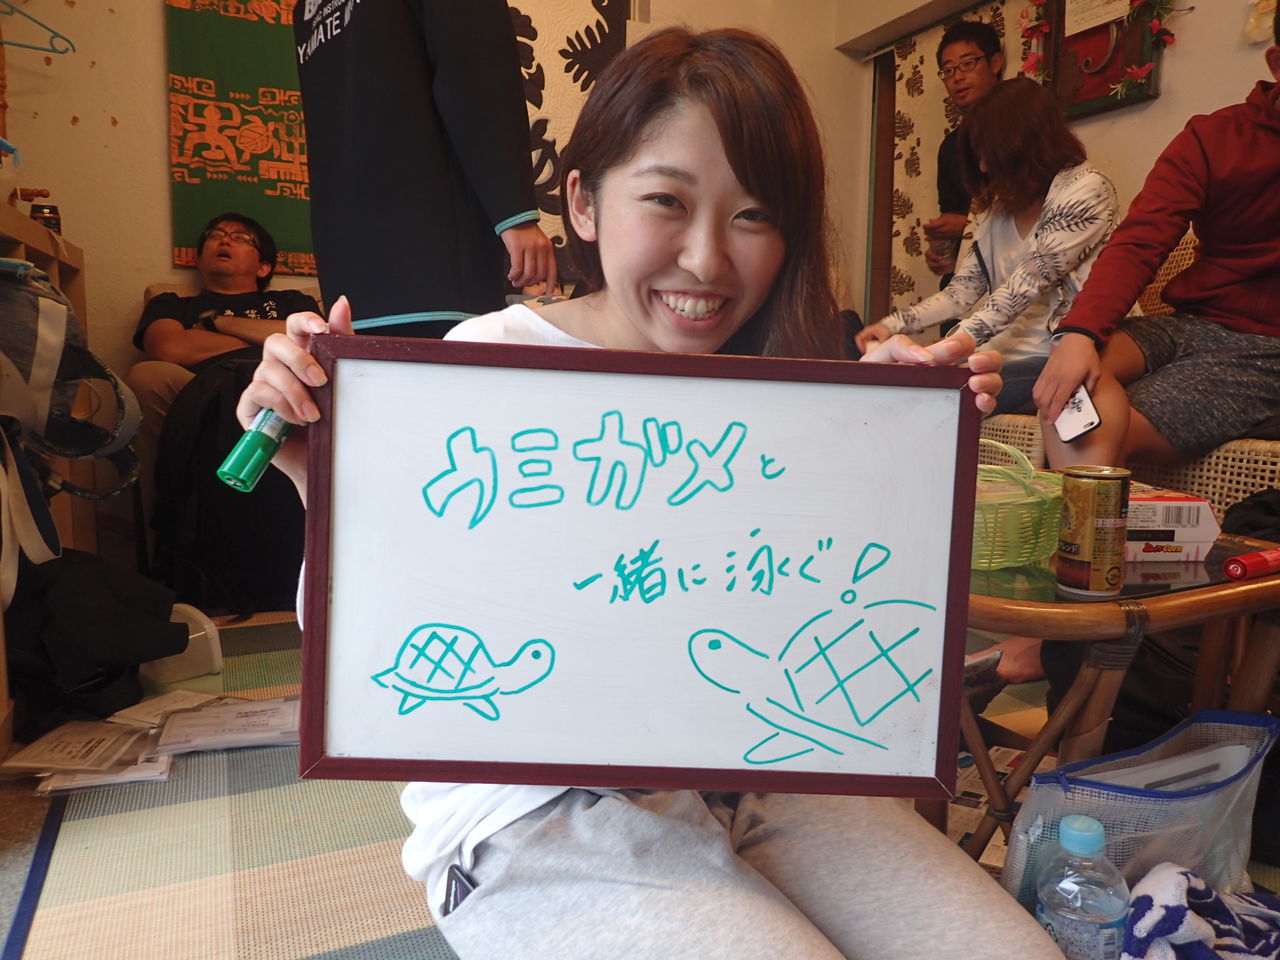 ウミガメと
一緒に泳ぐ!